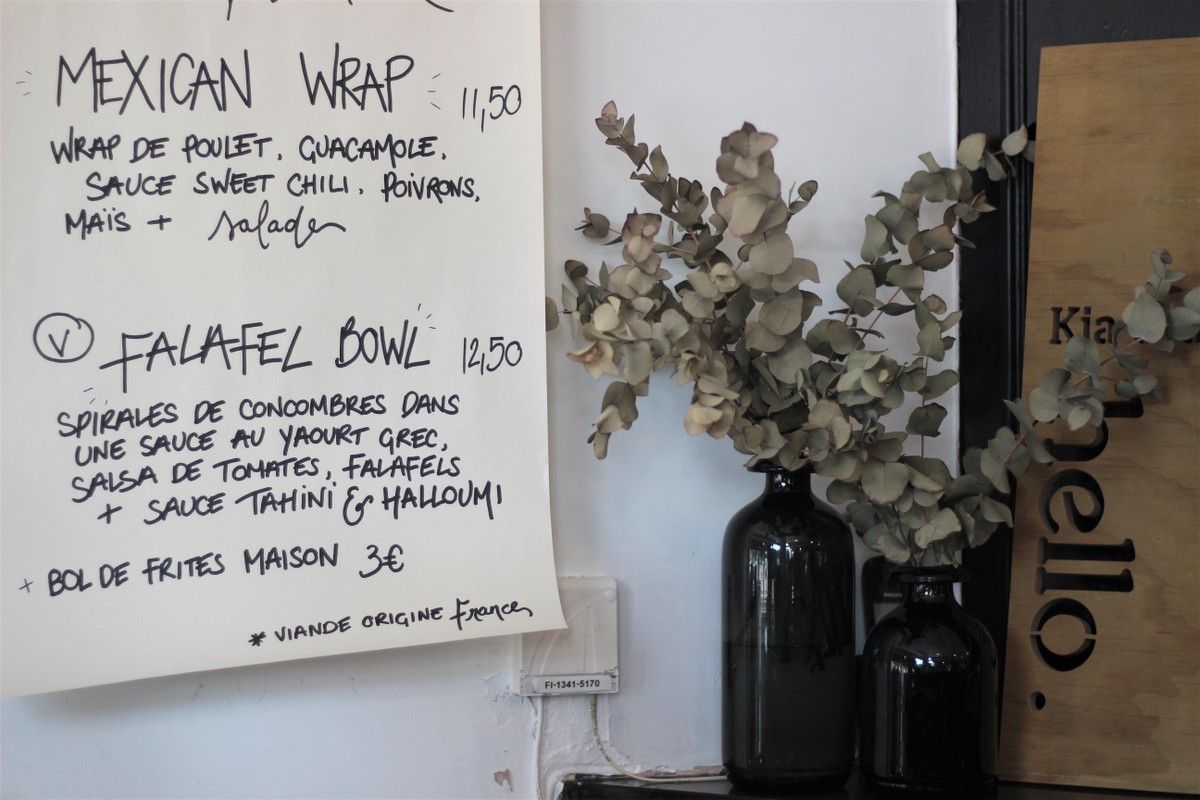 MEXICAN WRAP 11,50
WRAP DE POULET, GUACAMOLE,
SAUCE SWEET CHILI, POIVRONS,
MAÏS + salade
V FALAFEL BOWL 12,50
SPIRALES DE CONCOMBRES DANS
UNE SAUCE AU YAOURT GREC,
SALSA DE TOMATES, FALAFELS
+ SAUCE TAHINI & HALLOUMI
+ BOL DE FRITES MAISON 3€
* VIANDE ORIGINE France
FI-1341-5170
hello.